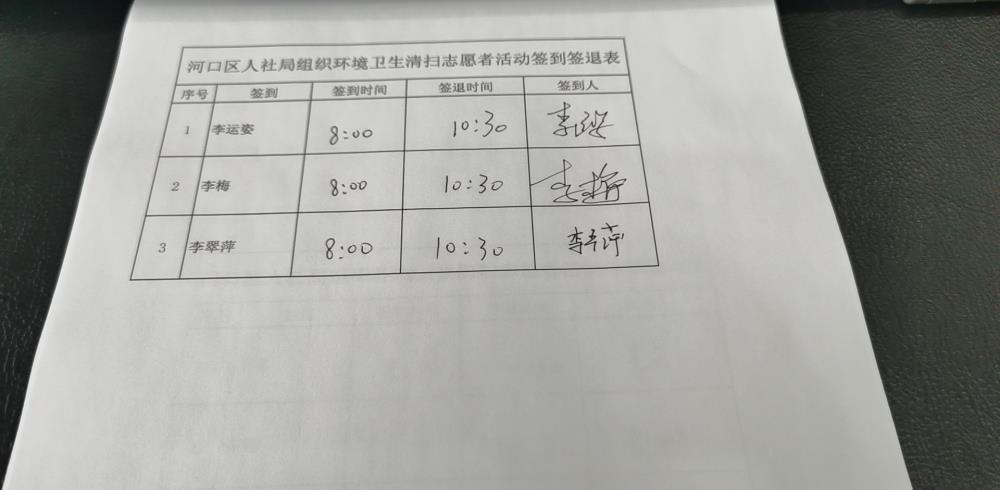 河口区人社局组织环境卫生清扫志愿者活动签到签退表
序号 签到 签到时间 签退时间 签到人
1 李运姿 8:00 10:30 李运姿
2 李梅 8:00 10:30 李梅
3 李翠萍 8:00 10:30 李翠萍